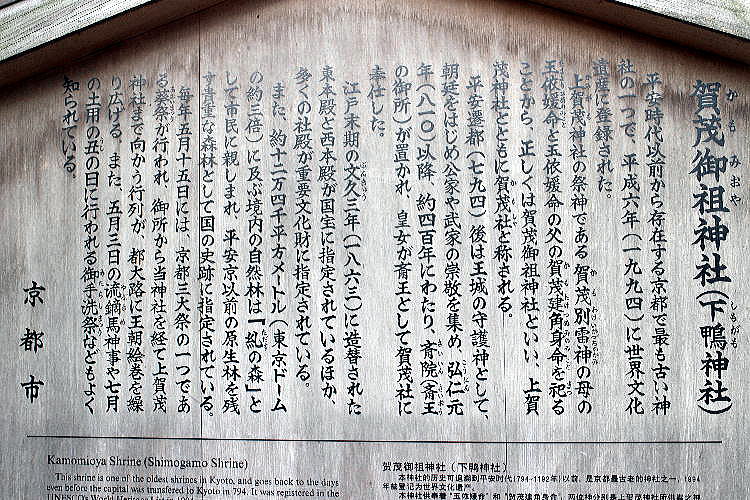 賀茂御祖神社（下鴨神社）
かもみおや
しもがも
平安時代以前から存在する京都で最も古い神
社の一つで、平成六年（一九九四）に世界文化
遺産に登録された。
上賀茂神社の祭神である賀茂別雷神の母の
玉依媛命と玉依媛命の父の賀茂建角身命を祀る
ことから、正しくは賀茂御祖神社といい、上賀
茂神社とともに賀茂社と称される。
平安遷都（七九四）後は王城の守護神として、
朝廷をはじめ公家や武家の崇敬を集め、弘仁元
年（八一〇）以降、約四百年にわたり、斎院（斎王
の御所）が置かれ、皇女が斎王として賀茂社に
奉仕した。
江戸末期の文久三年（一八六三）に造替された
東本殿と西本殿が国宝に指定されているほか、
多くの社殿が重要文化財に指定されている。
また、約十二万四千平方メートル（東京ドーム
の約三倍）に及ぶ境内の自然林は「糺の森」と
して市民に親しまれ、平安京以前の原生林を残
す貴重な森林として国の史跡に指定されている。
毎年五月十五日には、京都三大祭の一つであ
る葵祭が行われ、御所から当神社を経て上賀茂
神社まで向かう行列が、都大路に王朝絵巻を繰
り広げる。また、五月三日の流鏑馬神事や七月
の土用の丑の日に行われる御手洗祭などもよく
知られている。
京都市
Kamomioya Shrine (Shimogamo Shrine)
This shrine is one of the oldest shrines in Kyoto, and goes back to the days
even before the capital was transferred to Kyoto in 794. It was registered in the
賀茂御祖神社（下鸭神社）
本神社的历史可追溯到平安时代(794-1192年)以前，是京都最古老的神社之一，1994
年被登记为世界文化遗产。